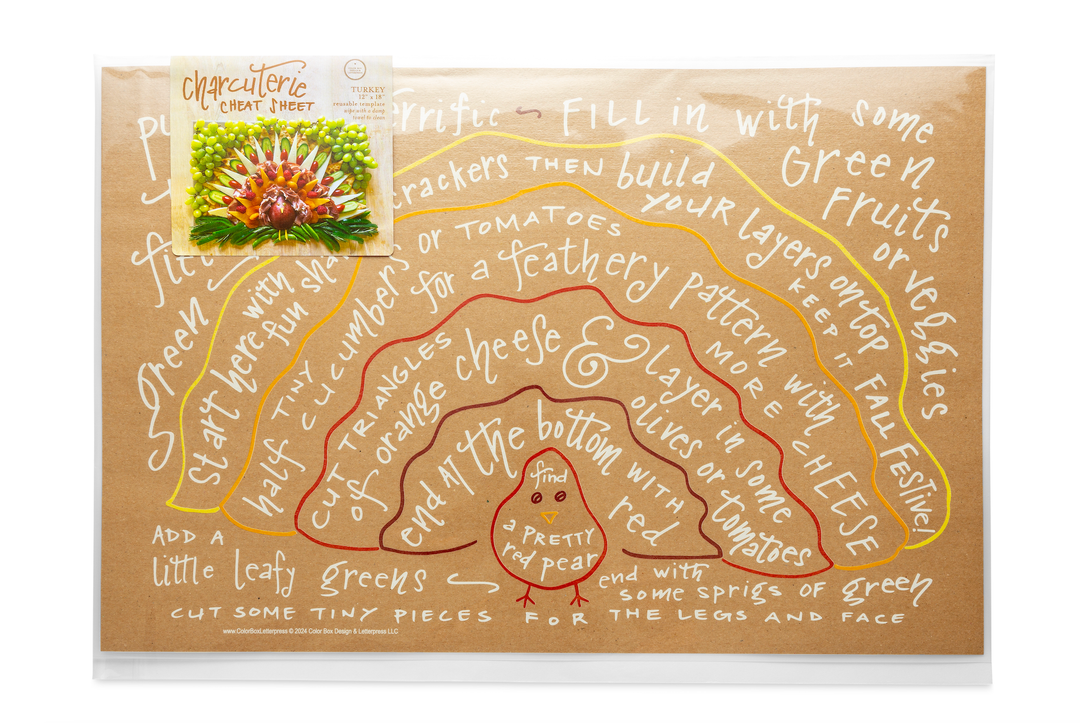 charcuterie
CHEAT SHEET
TURKEY
12" x 18"
reusable template
wipe with a damp
towel to clean
terrific ~ FILL in with some
Green
FRUITS
or veggies
green
Start here with
fun
crackers THEN build
YOUR layers on top
KEEP IT FALL FESTIVE!
half TINY
CUCUMBERS or TOMATOES
for a feathery pattern with
MORE CHEESE
CUT TRIANGLES
of orange cheese & layer in some
olives or tomatoes
end AT the bottom WITH
red
find
a PRETTY
red pear
ADD A
little leafy greens
end with
some sprigs of green
CUT SOME TINY PIECES FOR THE LEGS AND FACE
www.ColorBoxLetterpress © 2024 Color Box Design & Letterpress LLC